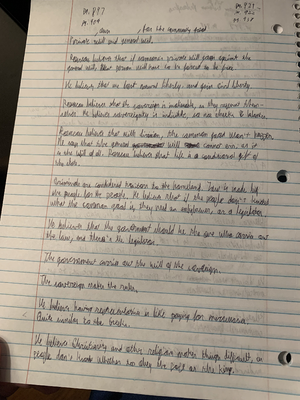 p. 927
p. 929
, for the community good
private will and general will.
Rousseau believes that if someone's private will goes against the
general will, that person will have to be forced to be free.
He believes that we have natural liberty, and gain civil liberty.
Rousseau believes that the sovereign is inalienable, as they represent
He believes sovereignty is indivisible,
Rousseau believes that with factions, the common good won't happen.
He says that the general will cannot err, as it
is the will of all. Rousseau believes that life is a conditional gift of
the state.
Criminals are considered traitors to the homeland. Law is made by
the people for the people. He believes that if the people don't know
what the common good is, they need an enlightener, or a legislator.
He believes that the government should be the one who carries out
the law, and there's the legislator.
The government carries out the will of the sovereign.
The sovereign makes the rules.
He believes having representatives is like paying for mercenaries.
Quite similar to the
He believes Christianity and other religion makes things difficult, as
people don't know whether to obey the pope or the king.